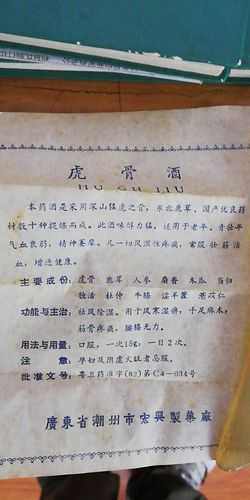 虎骨酒
HU GU JIU
本药酒是采用深山猛虎之骨，东北鹿茸，国产优良药
材数十种提炼而成。此酒味醇力猛，适用于老年、青壮年
气血衰弱，精神萎靡。凡一切风湿性疾病，常服壮筋活
血，增进健康。
主要成份：虎骨 鹿茸 人参 麝香 木瓜 当归
独活 杜仲 牛膝 淫羊藿 薏苡仁
功能与主治：祛风除湿。用于风寒湿痹，手足麻木，
筋骨疼痛，腰膝无力。
用法与用量：口服，一次15g，一日2次。
注意：孕妇及阴虚火旺者忌服。
批准文号：粤卫药准字(82)第C4—034号
廣東省潮州市宏興製藥廠